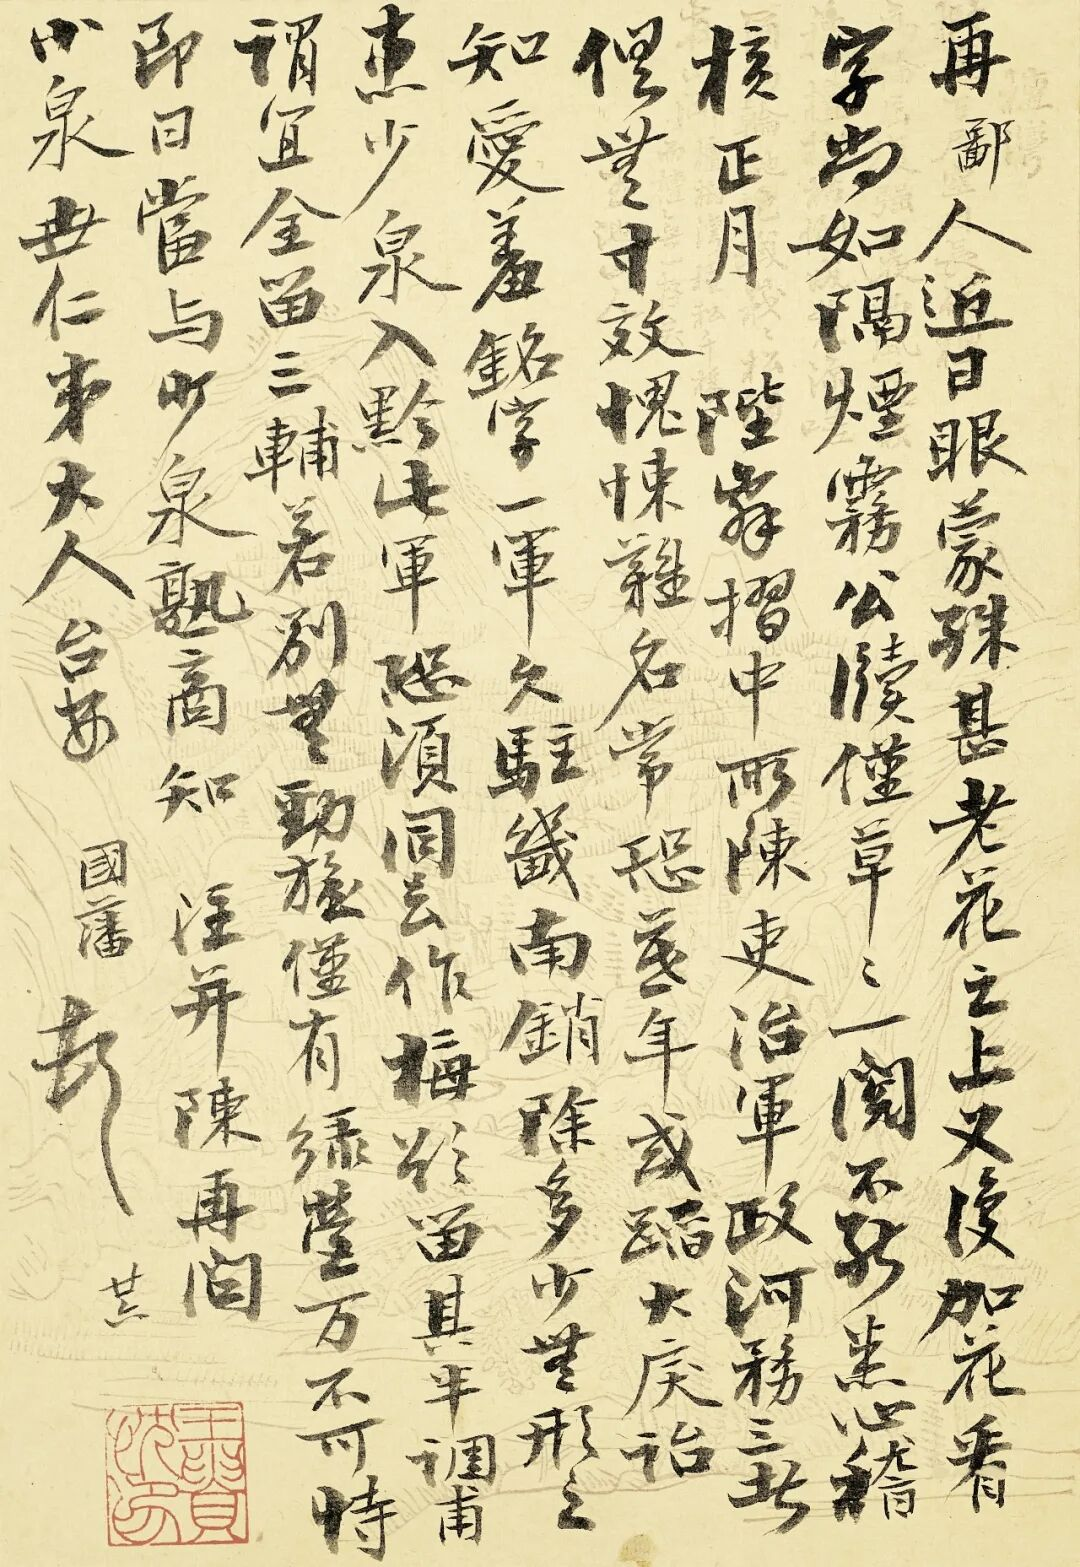 再鄙人近日眼蒙殊甚老花之上又復加花看
字尚如隔煙霧公牘僅草〻一閱不能悉心稽
核正月陛辭摺中所陳吏治軍政河務三者
俱無寸效愧悚難名常恐暮年或蹈大戾詒
知愛羞銘字一軍久駐畿南銷除多少無形之
患少泉入黔此軍恐須同去作梅欲留其半調甫
謂宜全留三輔若別無勁旅僅有綠營万不可恃
即日當与少泉熟商知注并陳再問
小泉世仁弟大人台安
國藩頓
廿三